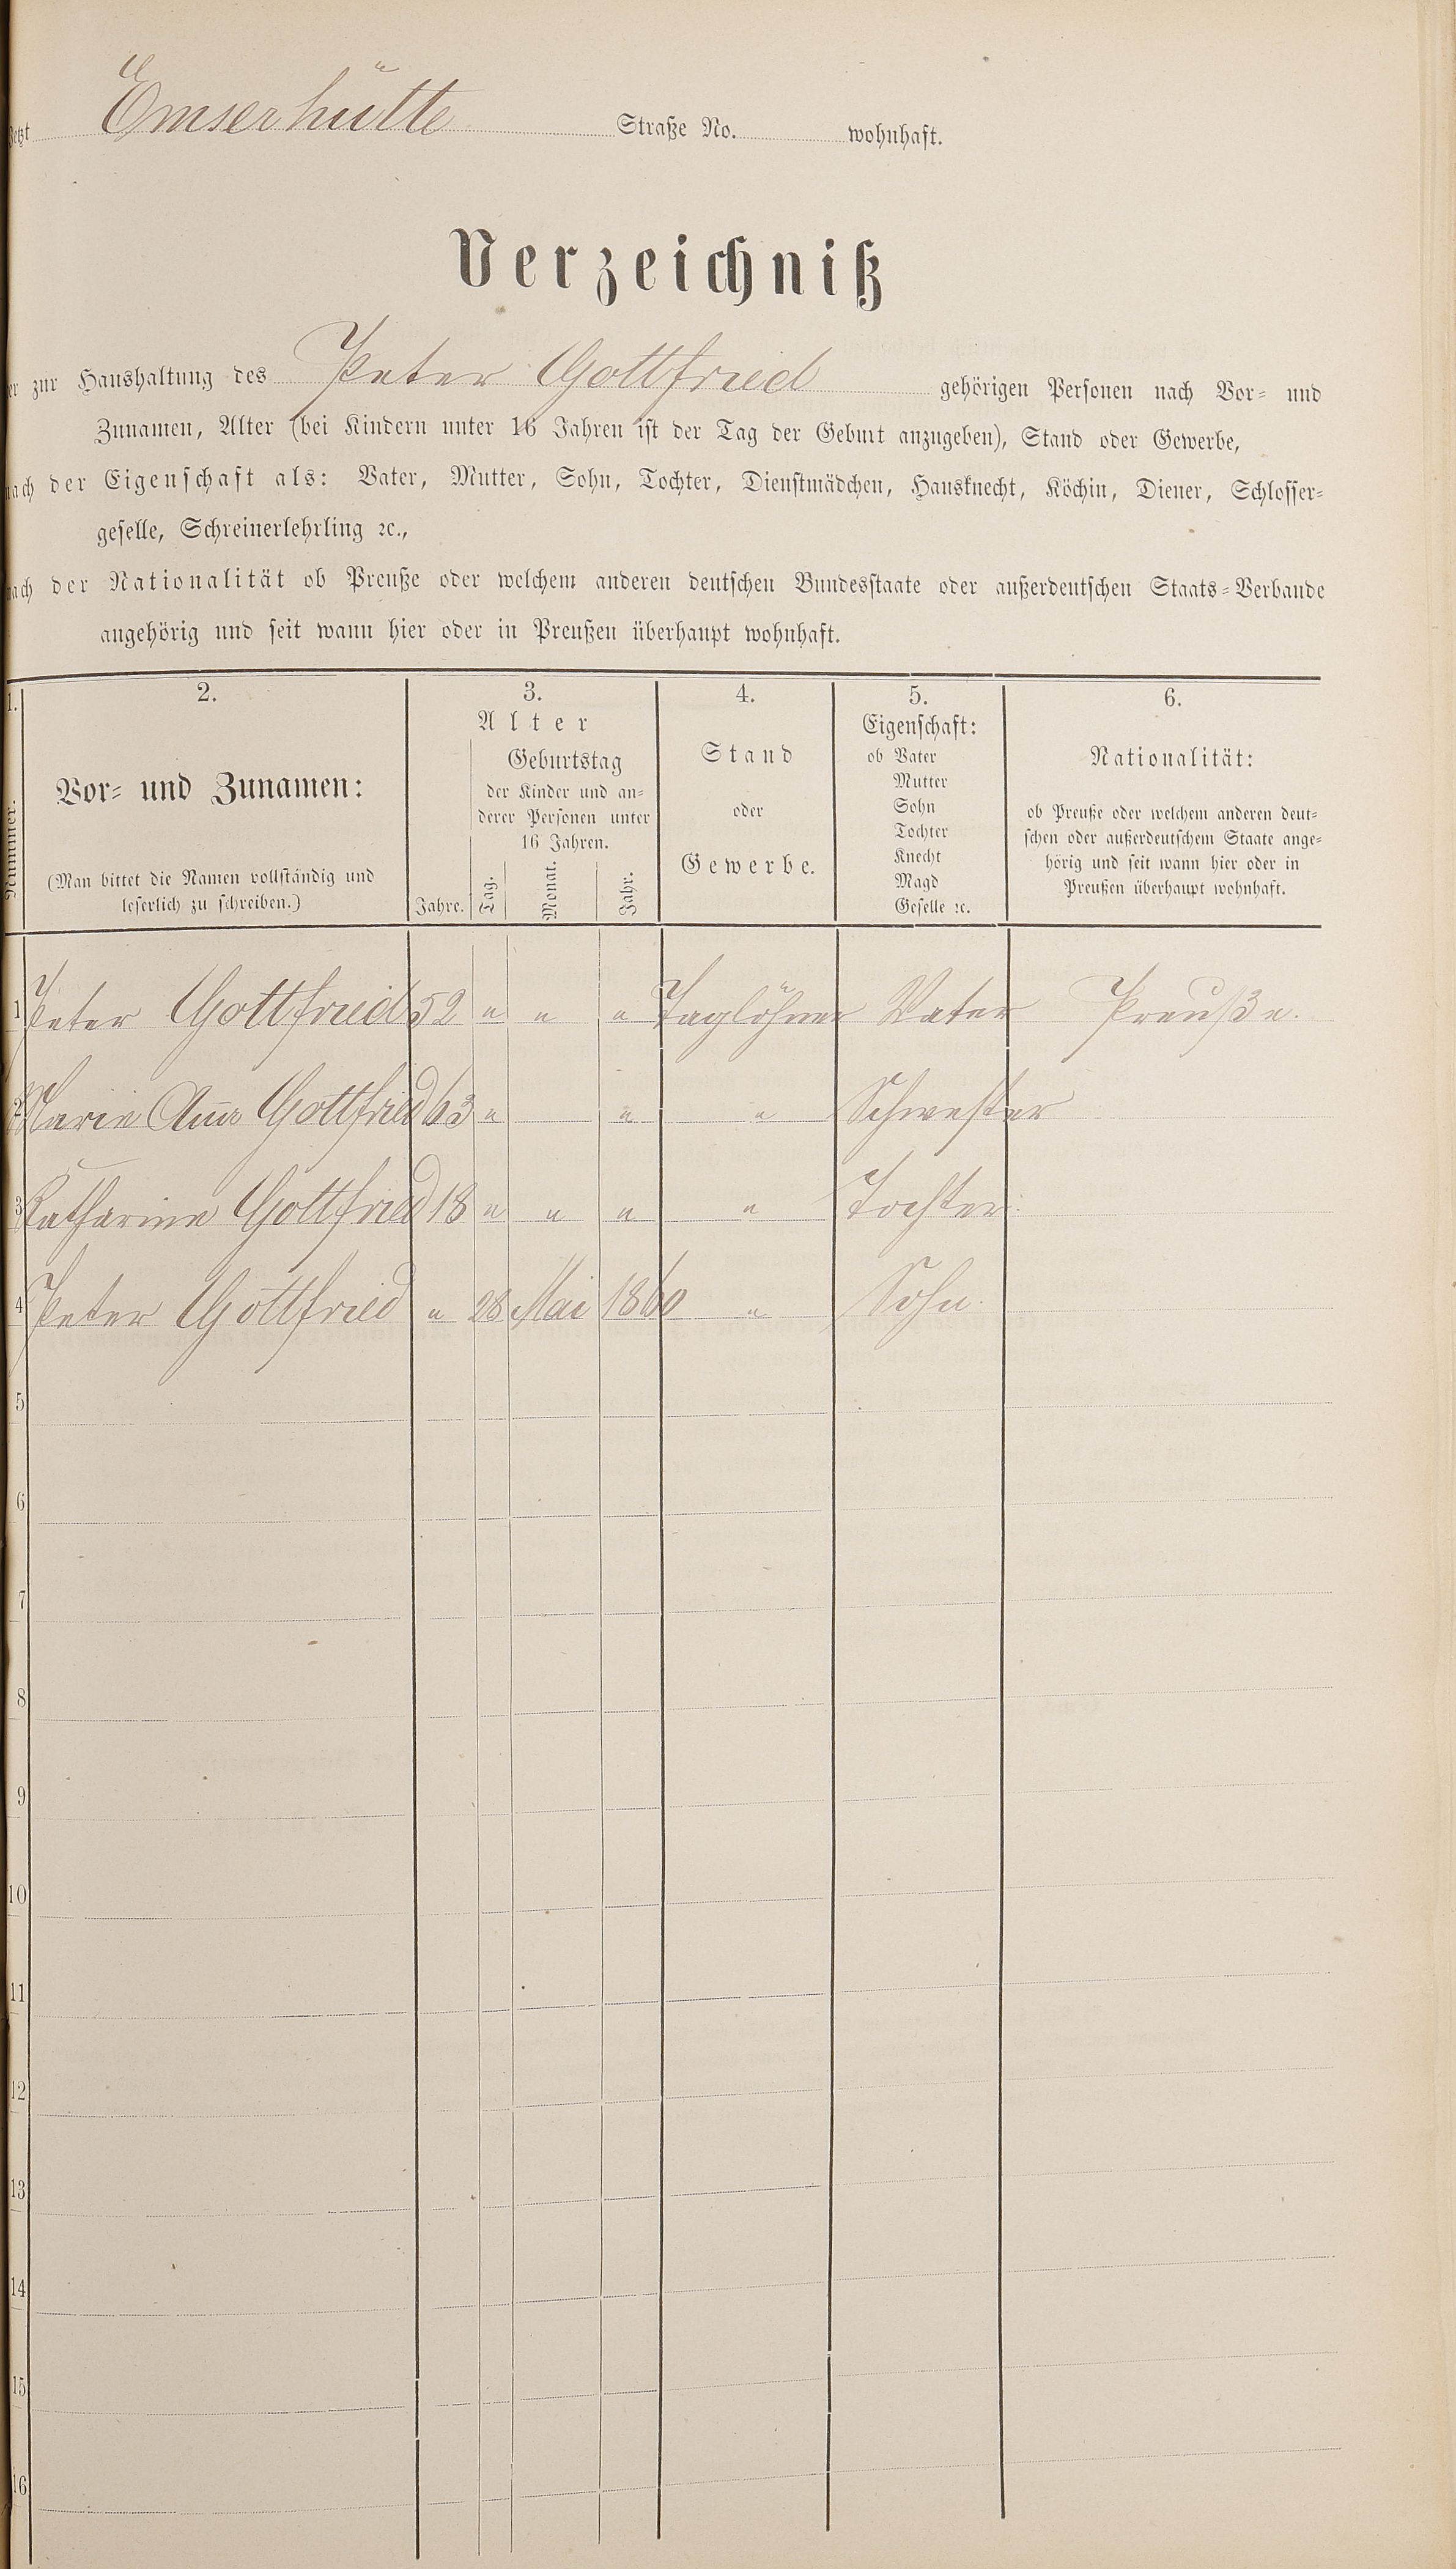 Jetzt Emserhütte Straße No. wohnhaft.
Verzeichniß
der zur Haushaltung des Peter Gottfried gehörigen Personen nach Vor- und
Zunamen, Alter (bei Kindern unter 16 Jahren ist der Tag der Geburt anzugeben), Stand oder Gewerbe,
nach der Eigenschaft als: Vater, Mutter, Sohn, Tochter, Dienstmädchen, Hausknecht, Köchin, Diener, Schlosser-
geselle, Schreinerlehrling ꝛc.,
nach der Nationalität ob Preuße oder welchem anderen deutschen Bundesstaate oder außerdeutschen Staats-Verbande
angehörig und seit wann hier oder in Preußen überhaupt wohnhaft.
1.
Nummer.
2.
Vor- und Zunamen:
(Man bittet die Namen vollständig und
leserlich zu schreiben.)
3.
Alter
Jahre.
Geburtstag
der Kinder und an-
derer Personen unter
16 Jahren.
Tag. Monat. Jahr.
4.
Stand
oder
Gewerbe.
5.
Eigenschaft:
ob Vater
Mutter
Sohn
Tochter
Knecht
Magd
Geselle ꝛc.
6.
Nationalität:
ob Preuße oder welchem anderen deut-
schen oder außerdeutschem Staate ange-
hörig und seit wann hier oder in
Preußen überhaupt wohnhaft.
1 Peter Gottfried 52 " " " Taglöhner Vater Preuße.
2 Marie Anna Gottfried 63 " " " Schwester
3 Katharina Gottfried 18 " " " " Tochter.
4 Peter Gottfried " 28 Mai 1860 " Sohn.
5
6
7
8
9
10
11
12
13
14
15
16